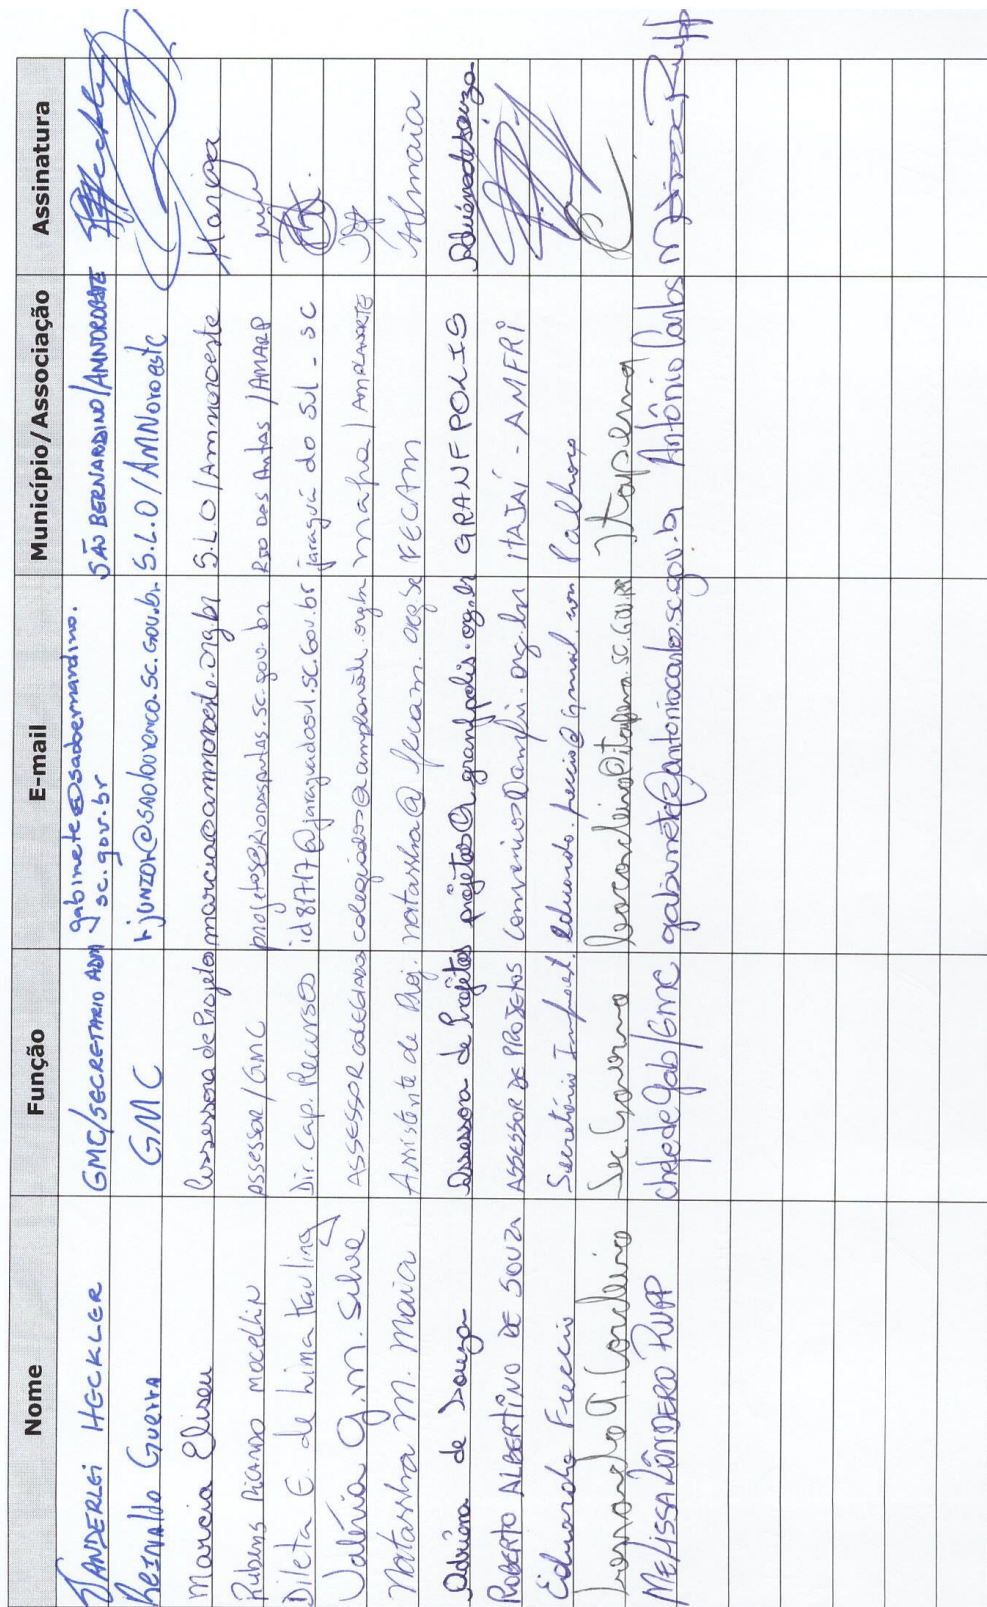 Nome Função E-mail Município/Associação Assinatura
VANDERLEI HECKLER GMC/SECRETARIO ADM gabinete@saobernardino.sc.gov.br SÃO BERNARDINO/AMNOROESTE
Reinaldo Guerra GMC rjunior@saolourenco.sc.gov.br S.L.O/AMNoroeste
Marcia Eliseu Assessora de Projetos marcia@amnoroeste.org.br S.L.O/Amnoroeste
Rubens Ricardo Mocellin Assessor/GMC projetos@riodasantas.sc.gov.br Rio das Antas/AMARP
Dileta E. de Lima Pauling Dir. Cap. Recursos id8717@jaraguadosul.sc.gov.br jaraguá do Sul - SC
Valéria G. M. Silva ASSESSOR COLEGIADOS colegiados@amplanorte.org.br Mafra/AMPLANORTE
Natassha M. Maia Assistente de Proj. natassha@fecam.org.br FECAM NMmaia
Adriana de Souza Assessora de Projetos projetos@granfpolis.org.br GRANFPOLIS Adrianadesouza
ROBERTO ALBERTINO DE SOUZA ASSESSOR DE PROJETOS convenios@amfri.org.br ITAJAÍ - AMFRI
Eduardo Freccia Secretário eduardo.freccia@gmail.com Palhoça
Cordeiro Sec. Governo Itapema
MELISSA LONDERO RUPP Chefe de Gab/GMC gabinete@antoniocarlos.sc.gov.br Antônio Carlos